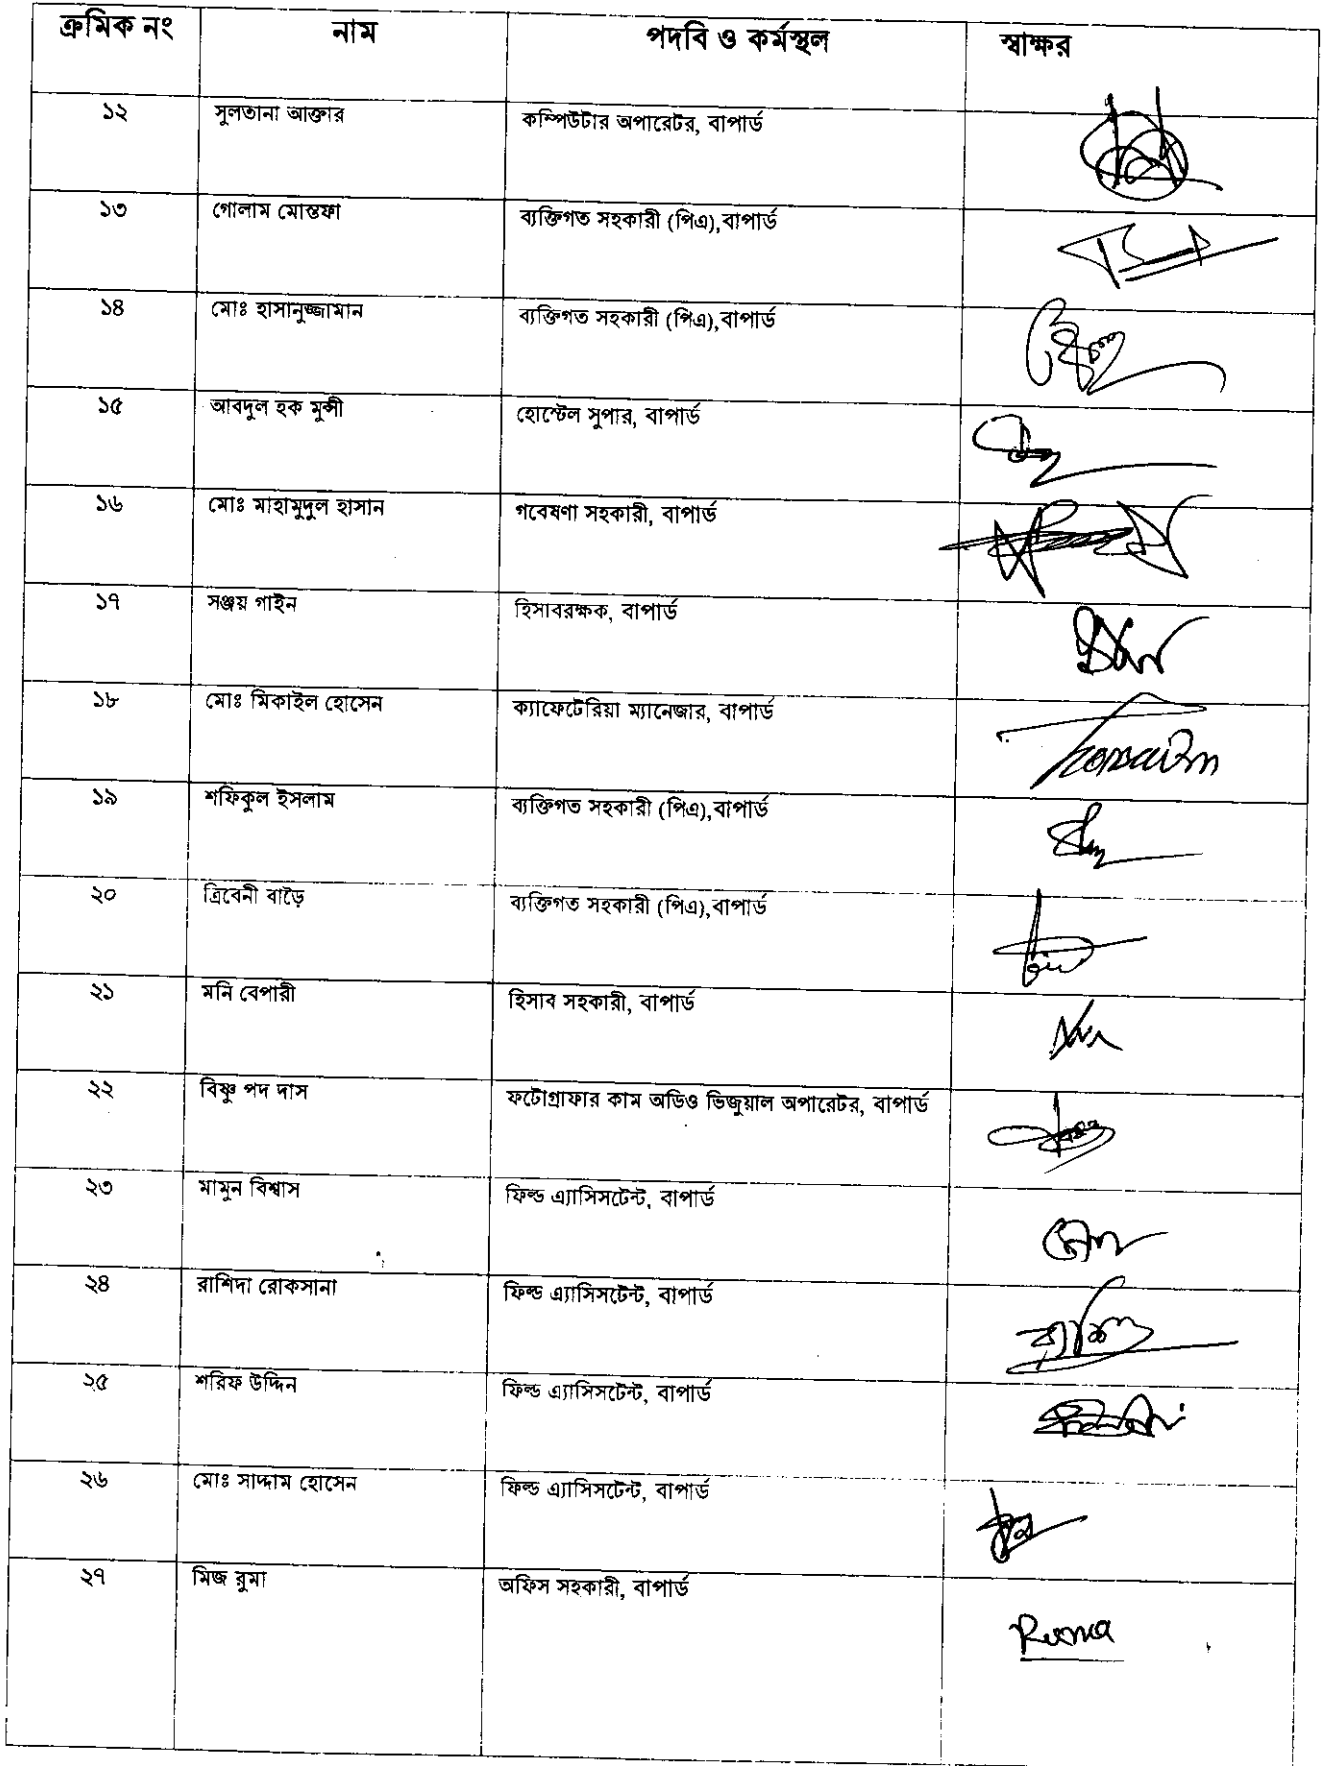 ক্রমিক নং নাম পদবি ও কর্মস্থল স্বাক্ষর
১২ সুলতানা আক্তার কম্পিউটার অপারেটর, বাপার্ড
১৩ গোলাম মোস্তফা ব্যক্তিগত সহকারী (পিএ),বাপার্ড
১৪ মোঃ হাসানুজ্জামান ব্যক্তিগত সহকারী (পিএ),বাপার্ড
১৫ আবদুল হক মুন্সী হোস্টেল সুপার, বাপার্ড
১৬ মোঃ মাহামুদুল হাসান গবেষণা সহকারী, বাপার্ড
১৭ সঞ্জয় গাইন হিসাবরক্ষক, বাপার্ড
১৮ মোঃ মিকাইল হোসেন ক্যাফেটেরিয়া ম্যানেজার, বাপার্ড
১৯ শফিকুল ইসলাম ব্যক্তিগত সহকারী (পিএ),বাপার্ড
২০ ত্রিবেনী বাড়ৈ ব্যক্তিগত সহকারী (পিএ),বাপার্ড
২১ মনি বেপারী হিসাব সহকারী, বাপার্ড
২২ বিষ্ণু পদ দাস ফটোগ্রাফার কাম অডিও ভিজুয়াল অপারেটর, বাপার্ড
২৩ মামুন বিশ্বাস ফিল্ড এ্যাসিসটেন্ট, বাপার্ড
২৪ রাশিদা রোকসানা ফিল্ড এ্যাসিসটেন্ট, বাপার্ড
২৫ শরিফ উদ্দিন ফিল্ড এ্যাসিসটেন্ট, বাপার্ড
২৬ মোঃ সাদ্দাম হোসেন ফিল্ড এ্যাসিসটেন্ট, বাপার্ড
২৭ মিজ রুমা অফিস সহকারী, বাপার্ড Ruma